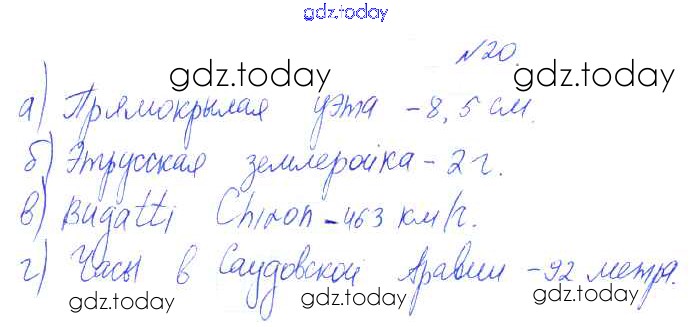 gdz.today
№20.
gdz.today gdz.today
а) Прямокрылая уэта - 8,5 см.
б) Этрусская землеройка - 2 г.
gdz.today gdz.today
в) Bugatti Chiron - 463 км/г.
г) Часы в Саудовской Аравии - 92 метра.
gdz.today gdz.today